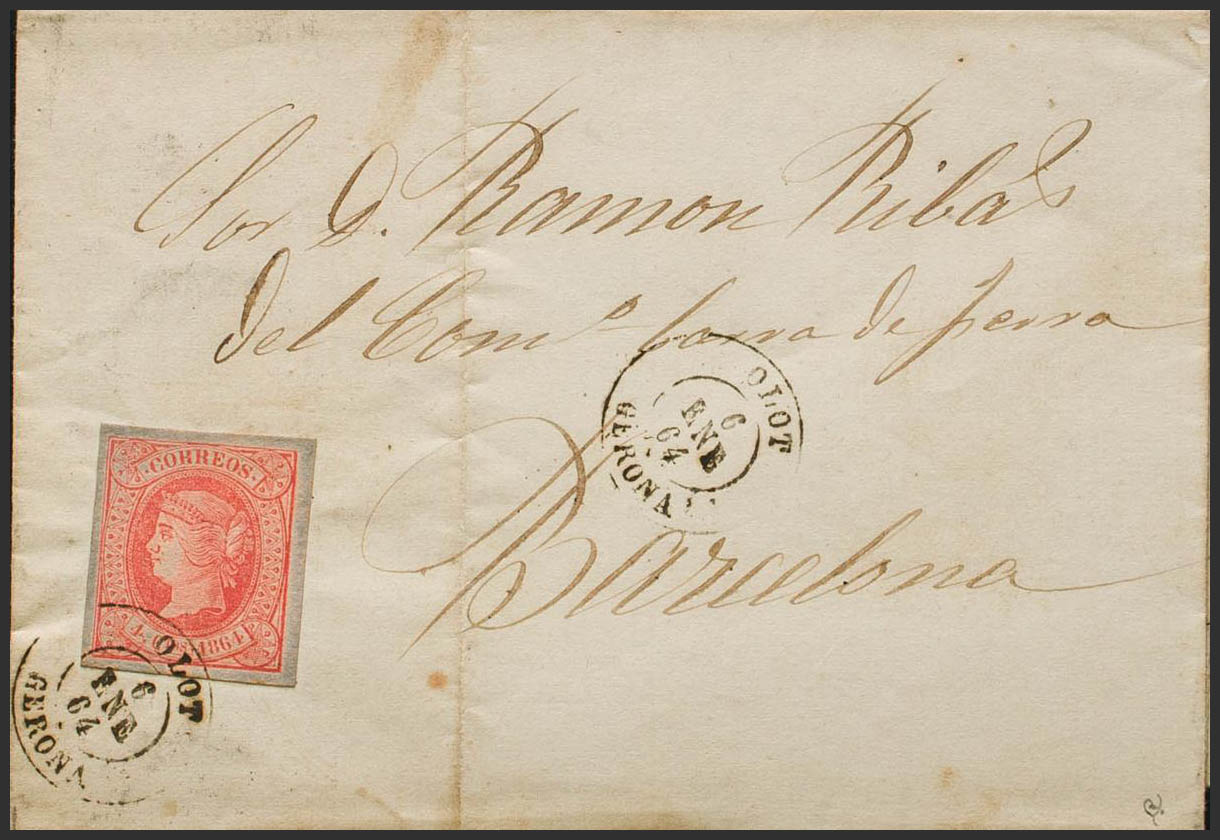 Sor D. Ramon Ribas
del Como barra de ferro
Barcelona
OLOT
6
ENE
64
GERONA
CORREOS
4 Cos 1864
OLOT
6
ENE
64
GERONA